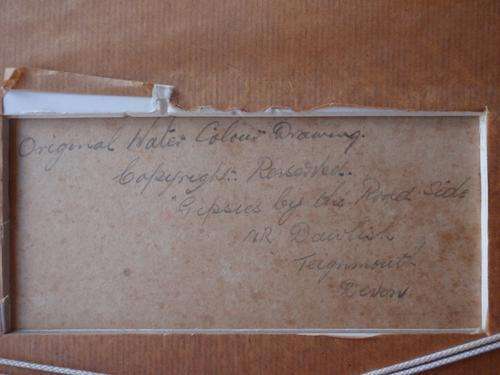 Original Water Colour Drawing.
Copyright. Reserved.
"Gipsies by the Road Side
nR Dawlish
Teignmout
Devon